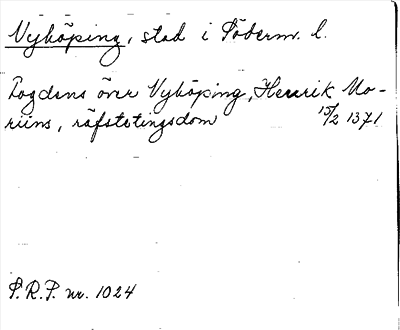 Nyköping, stad i Söderm. l.
Logdens över Nyköping, Henrik Mo-
riins, räfstetingsdom 15/2 1371
S.R.P. nr. 1024